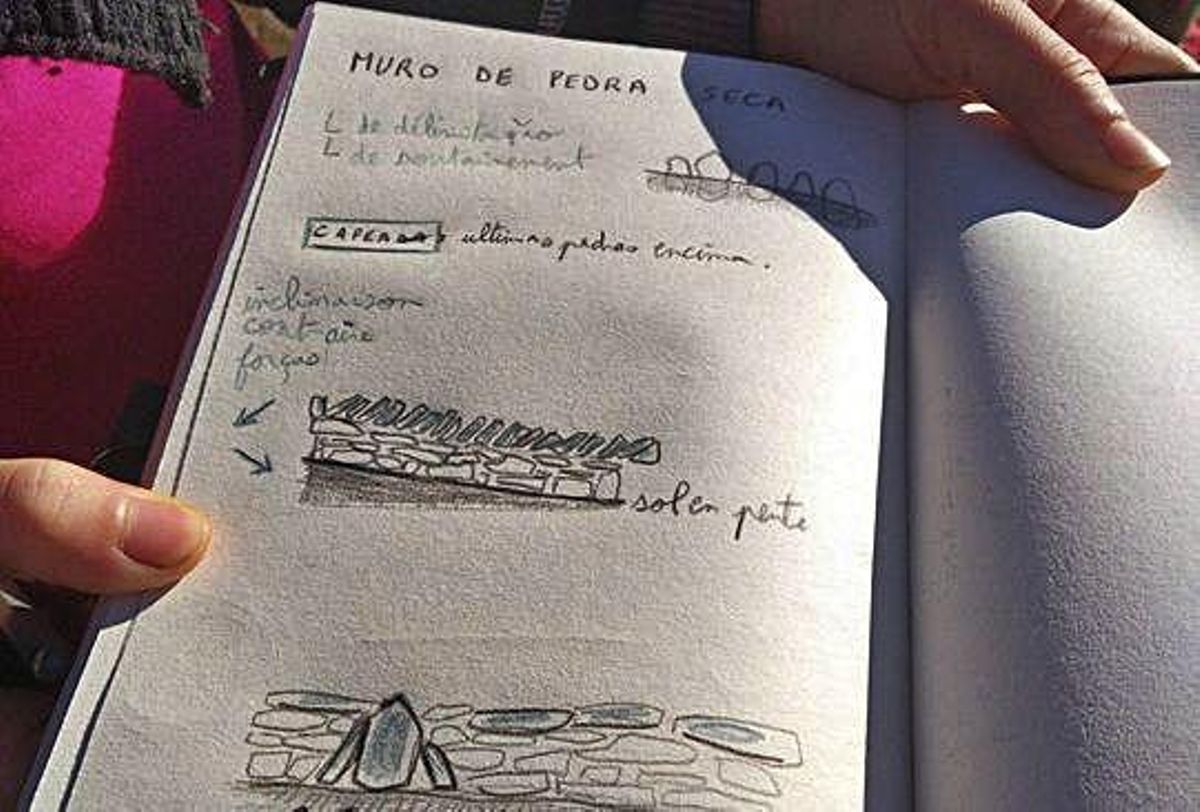 MURO DE PEDRA SECA
L de délimitação
L de soutainement
CAPEADA ultimas pedras encima.
inclinaison
contraire
forças
sol en pente